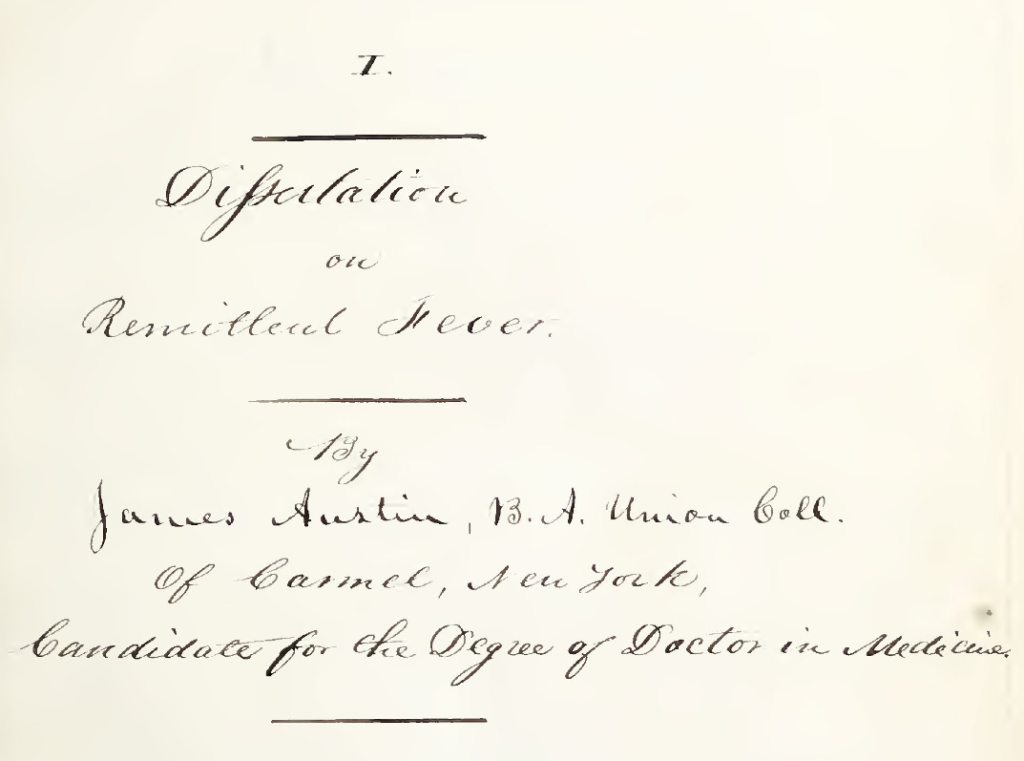 I.
Dissertation
on
Remittent Fever.
By
James Austin, B.A. Union Coll.
Of Carmel, New York,
Candidate for the Degree of Doctor in Medicine.